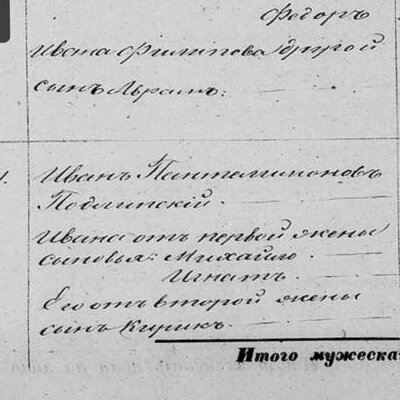 Федоръ
Ивана Филипова другой
сынъ Абрамъ.
1.
Иванъ Пантелимоновъ
Подлипскій.
Ивана отъ первой жены
сыновья: Михайло.
Игнатъ.
Его отъ второй жены
сынъ Кирикъ.
Итого мужеска